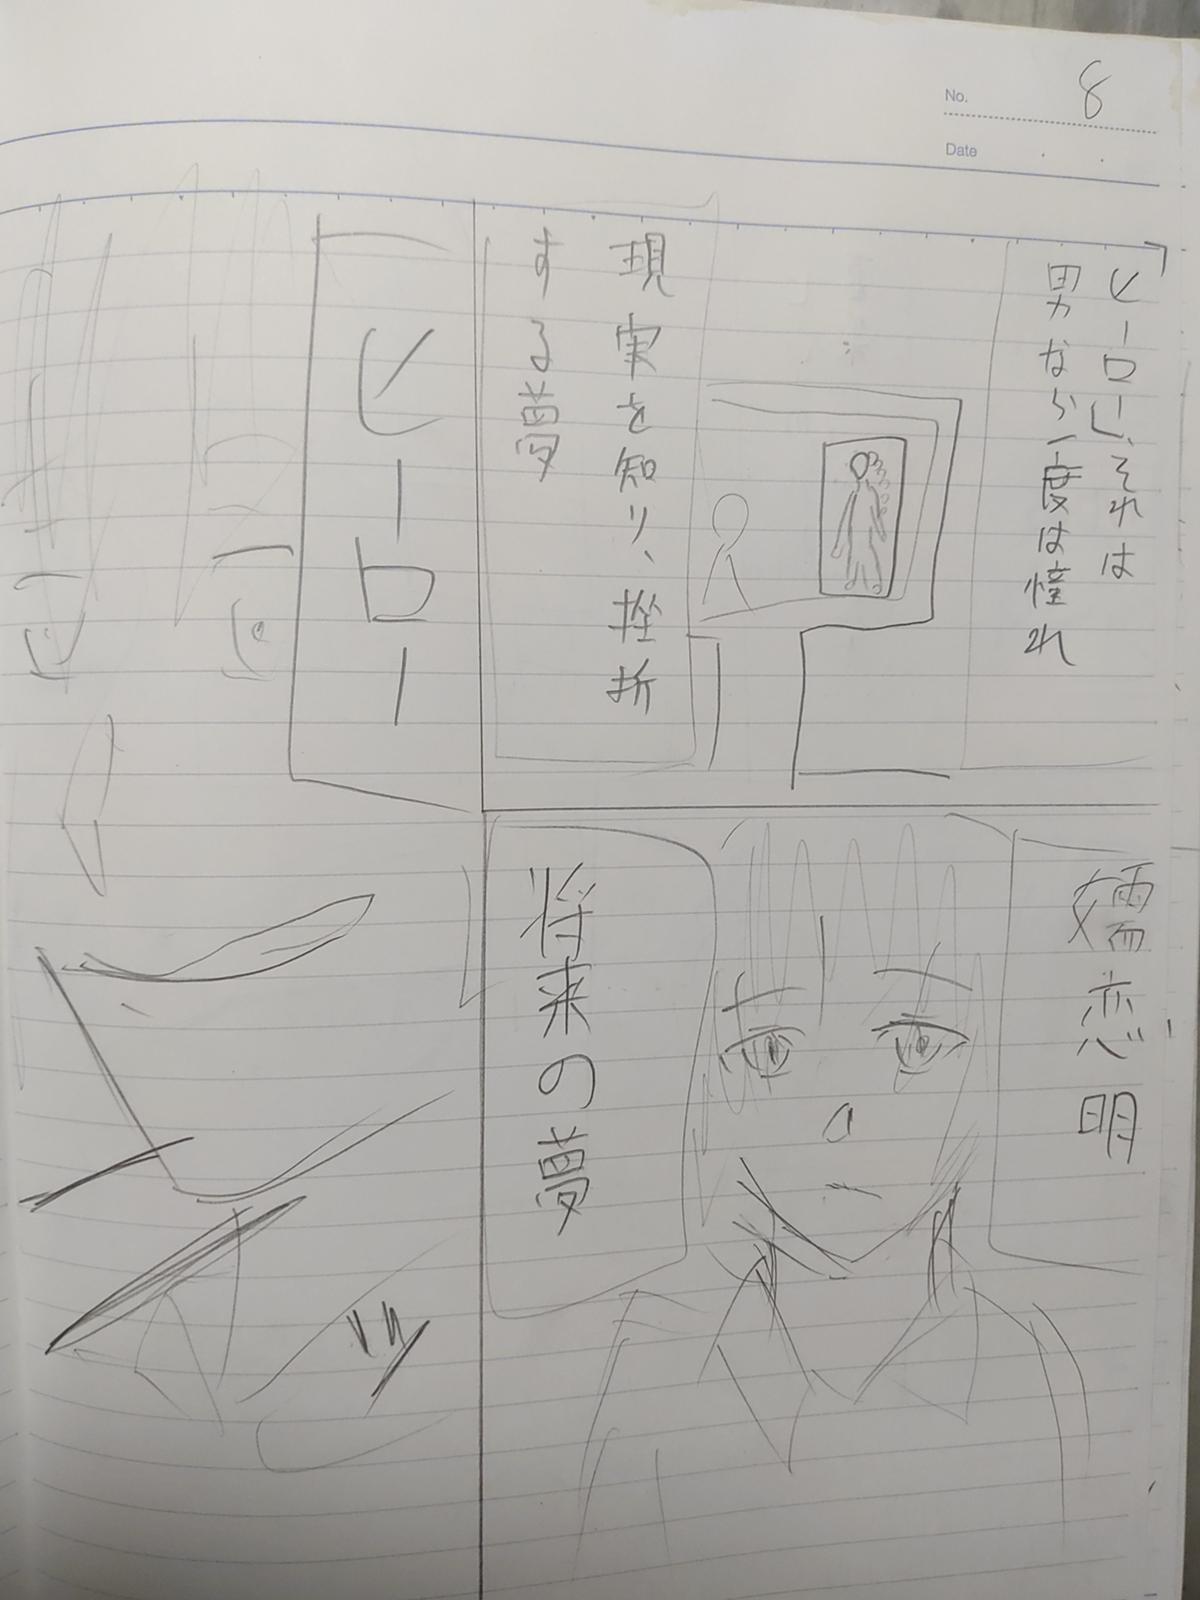 No. 8
Date
「ヒーロー」、それは
男なら一度は憧れ
現実を知り、挫折
する夢
嬬恋明
将来の夢
ヒーロー